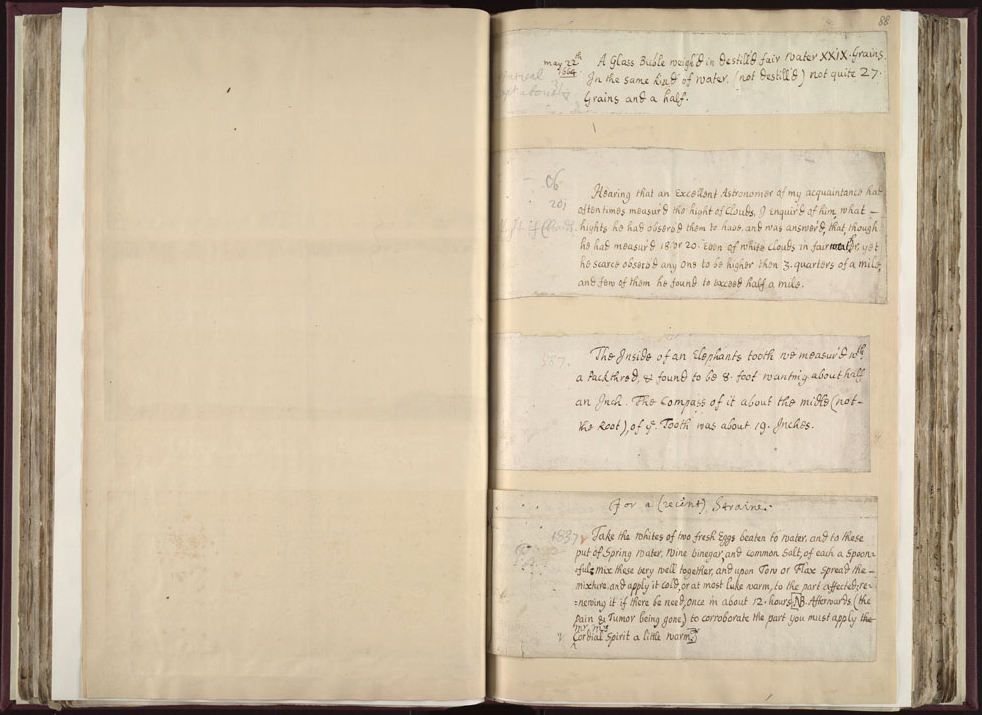 88
may 22th 1684 A Glass Buble weigh'd in destill'd fair water XXIX. Grains.
In the same kind of water, (not destill'd) not quite 27.
Grains and a half.
06
201
Hearing that an Excellent Astronomer of my acquaintance hat
often times measur'd the hight of Clouds, I enquir'd of him, what
hights he had observ'd them to have, and was answer'd, that though
he had measur'd 18 or 20. Even of white Clouds in fair yet
he scarce observ'd any one to be higher then 3. quarters of a mile,
and few of them he found to exceed half a mile.
557.
The Inside of an Elephants tooth we measur'd wth
a Packthred, & found to be 8. foot wanting about half
an Inch. The Compass of it about the midle (not-
the Root), of ye. Tooth was about 19. Inches.
For a (recent) Straine.
1837
Take the whites of two fresh Eggs beaten to water, and to these
put of Spring water, wine vinegar, and common Salt, of each a Spoon=
=ful, mix these very well together, and upon Tow or Flax spread the
mixture, and apply it cold, or at most luke warm, to the part affected; re=
=newing it if there be need, once in about 12. hours NB. Afterwards (the
pain & Tumor being gone) to corroborate the part you must apply the
Cordial Spirit a little warm